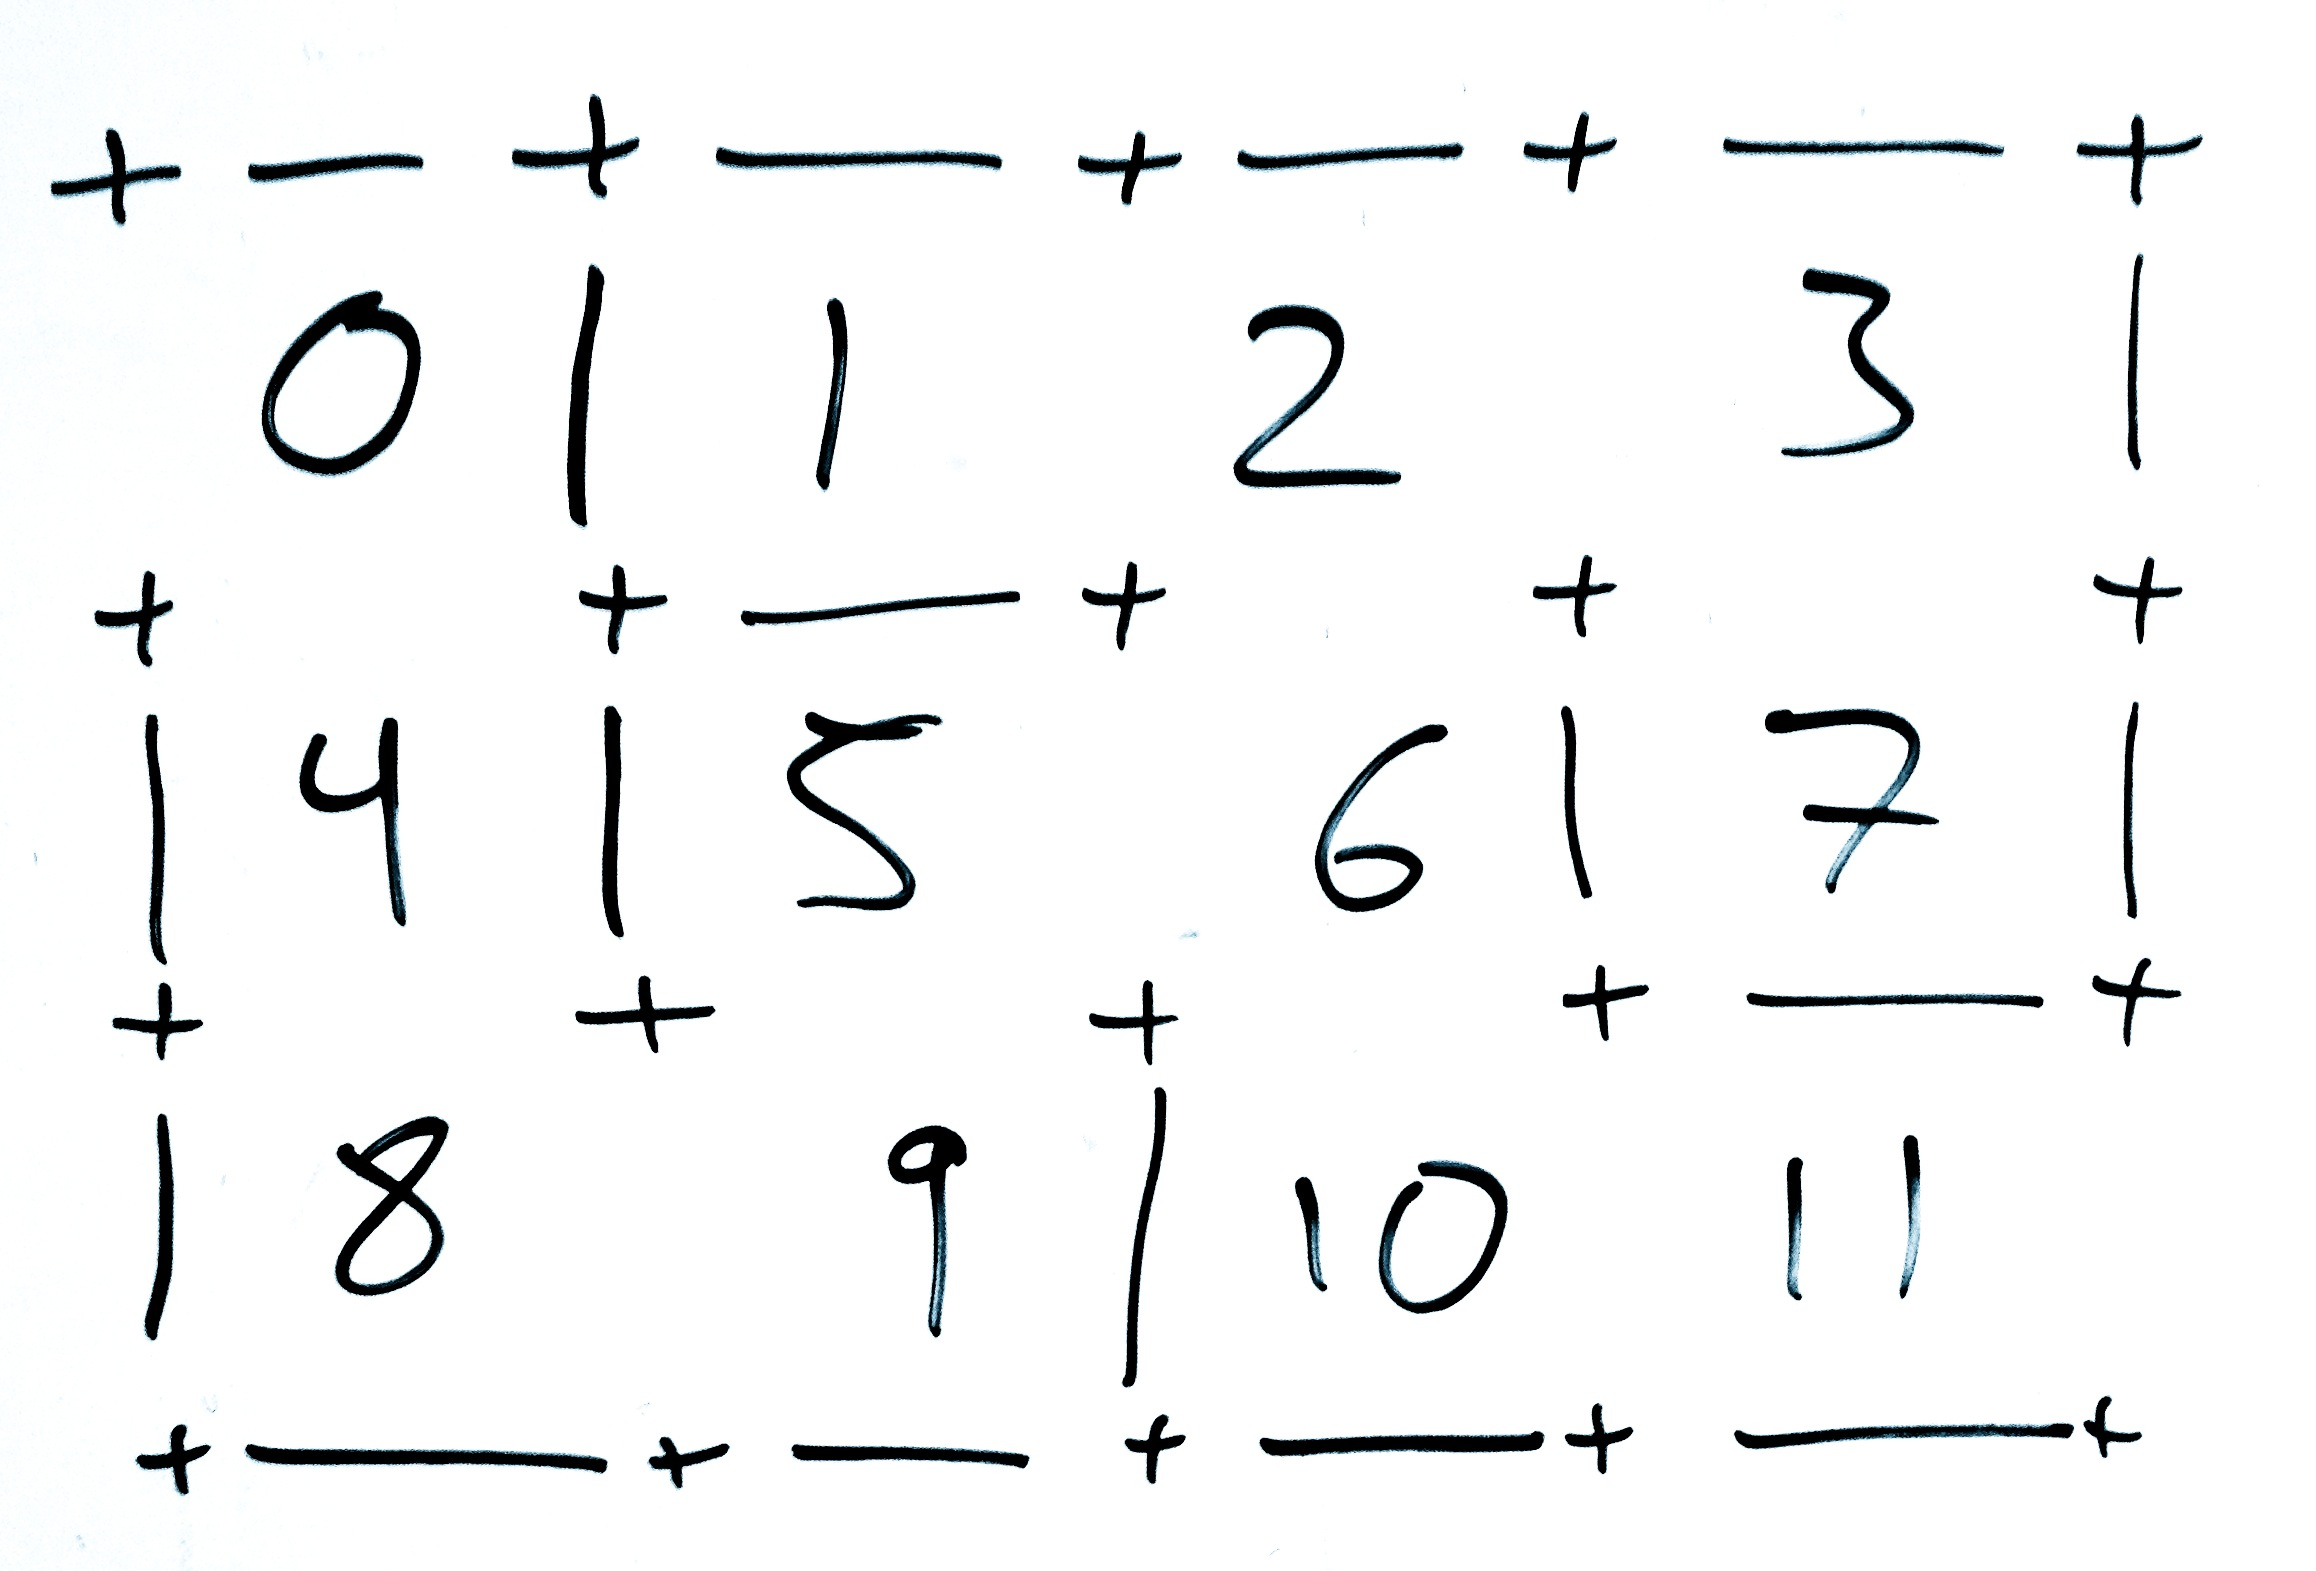 + — + — + — + — +
0 | 1 2 3 |
+ + — + + +
| 4 | 5 6 | 7 |
+ + + + — +
| 8 9 | 10 11
+ — + — + — + — +